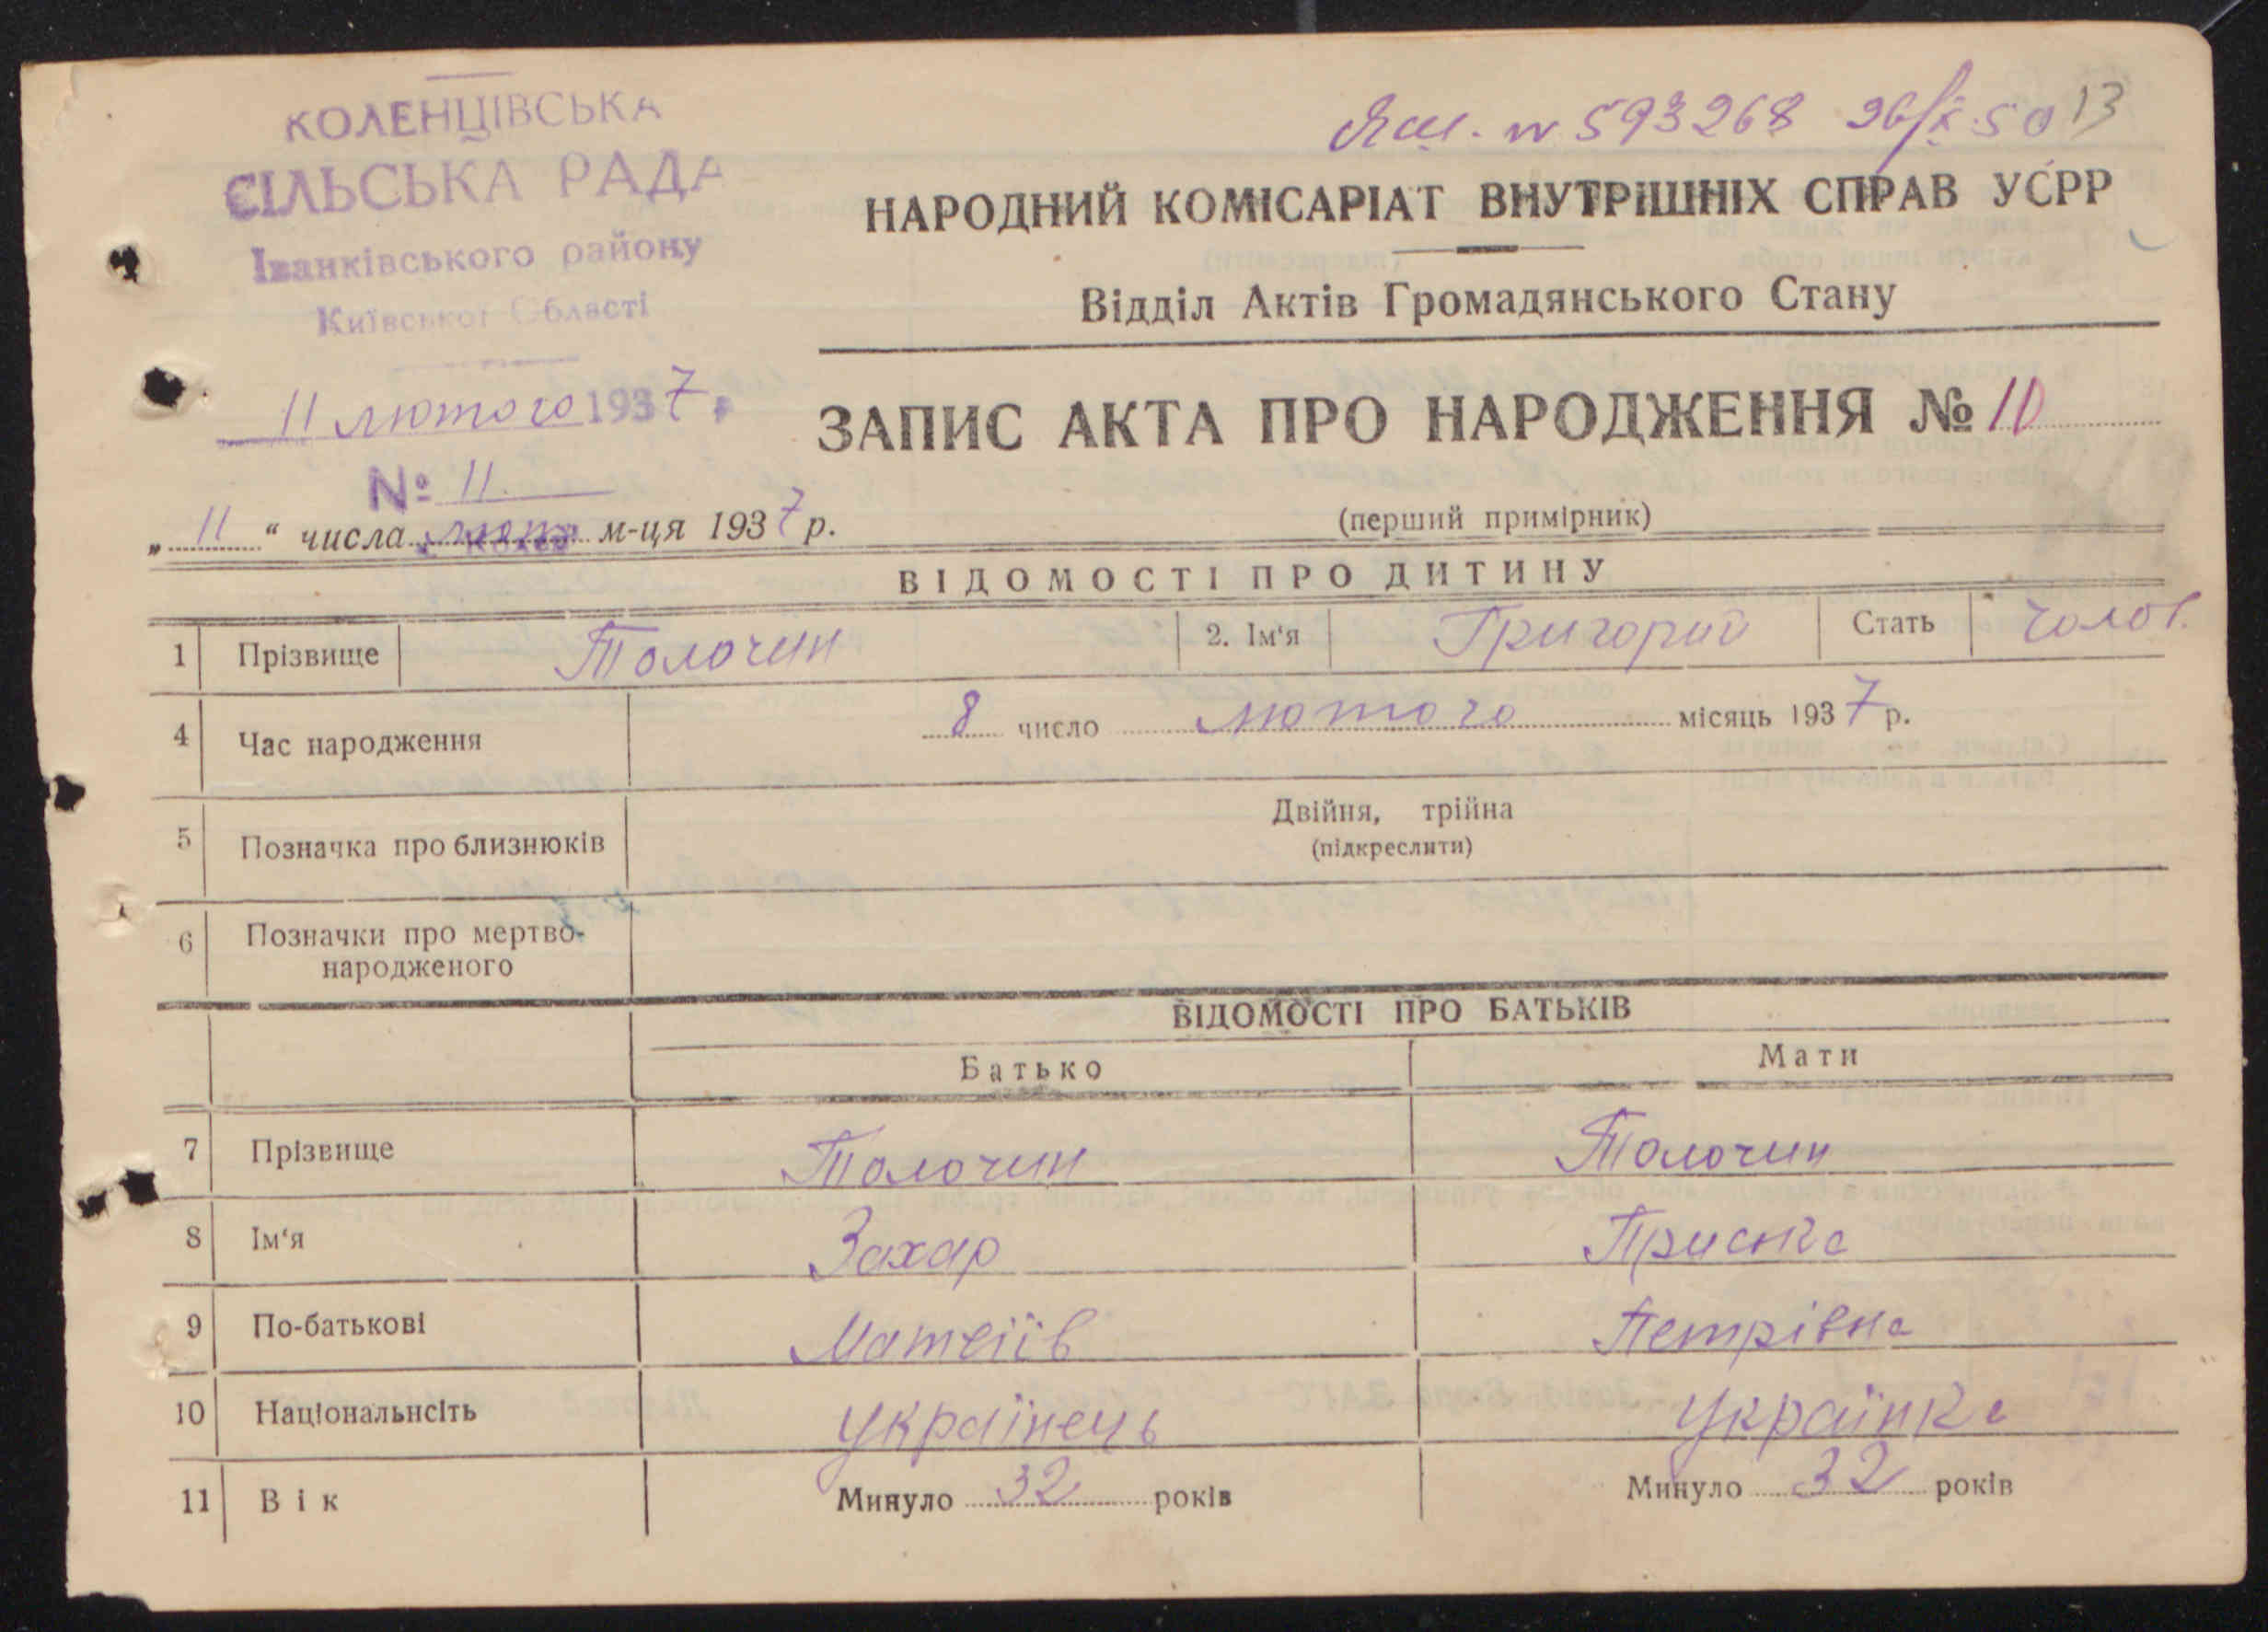 КОЛЕНЦІВСЬКА
СІЛЬСЬКА РАДА
Іванківського району
Київської Області
11 лютого 1937
№ 11
№ 593268 26/X 50 13
НАРОДНИЙ КОМІСАРІАТ ВНУТРІШНІХ СПРАВ УСРР
Відділ Актів Громадянського Стану
ЗАПИС АКТА ПРО НАРОДЖЕННЯ № 10
(перший примірник)
„ 11 “ числа м-ця 1937 р.
ВІДОМОСТІ ПРО ДИТИНУ
1 Прізвище Толочин 2. Ім'я Григорий Стать чолов.
4 Час народження 8 число лютого місяць 1937 р.
5 Позначка про близнюків Двійня, трійна
(підкреслити)
6 Позначки про мертво-
народженого
ВІДОМОСТІ ПРО БАТЬКІВ
Батько Мати
7 Прізвище Толочин Толочин
8 Ім'я Захар Приська
9 По-батькові Матеіїв Петрівна
10 Національнсіть Українець Українка
11 Вік Минуло 32 років Минуло 32 років